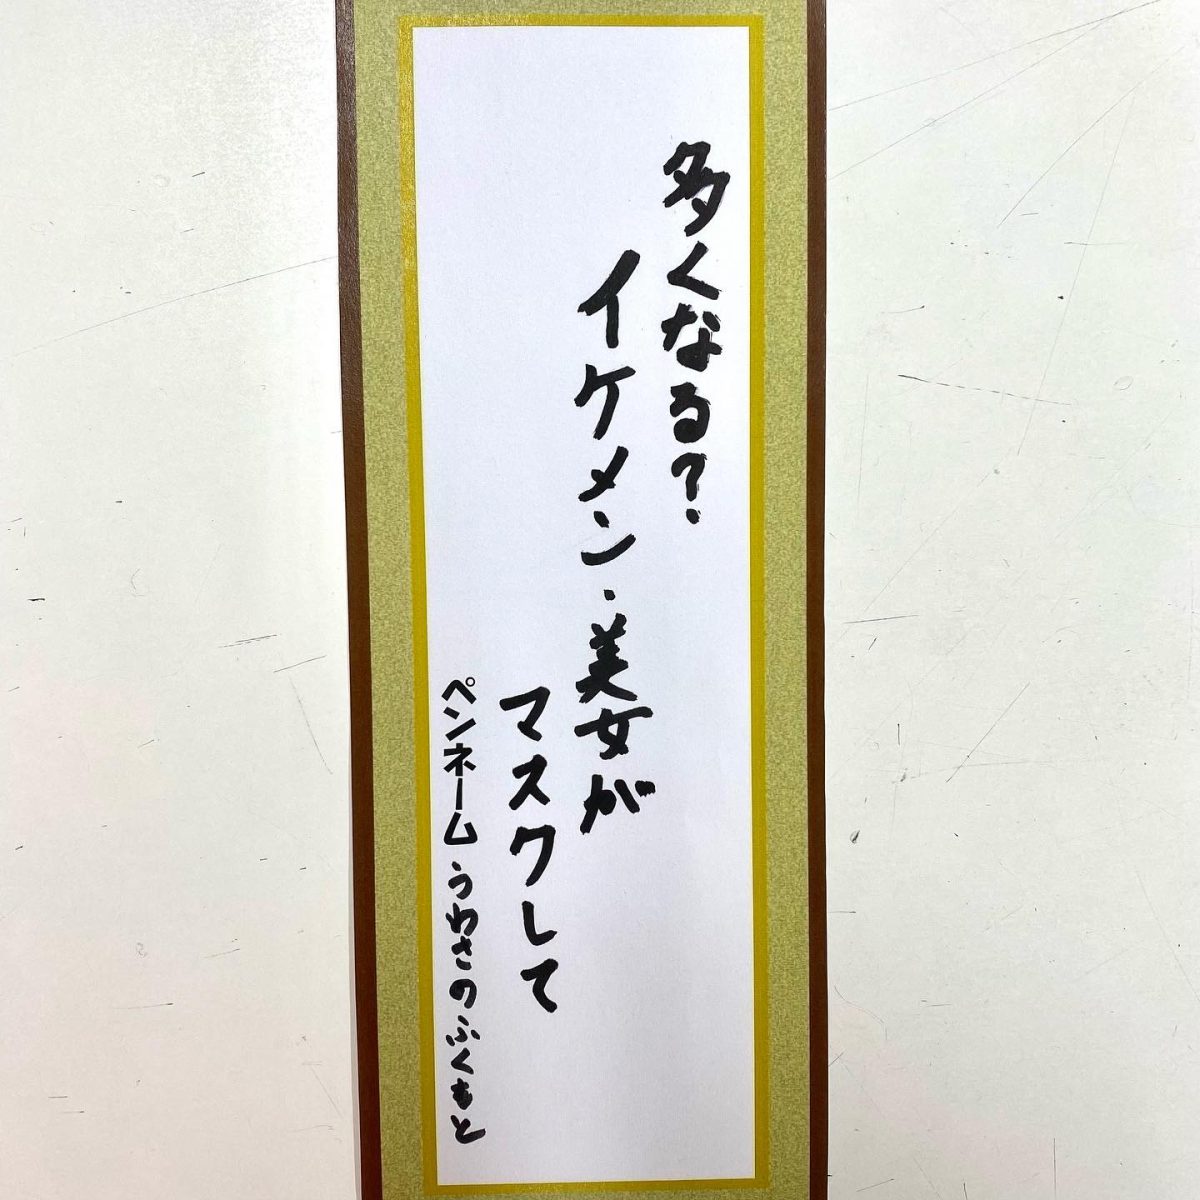 多くなる?
イケメン・美女が
マスクして
ペンネーム・うわさのふくもと